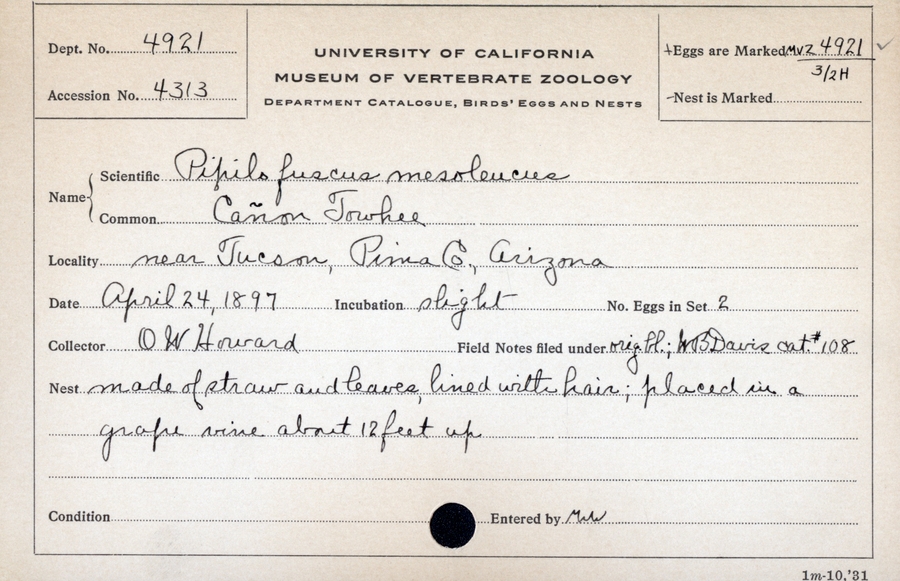 Dept. No. 4921
Accession No. 4313
UNIVERSITY OF CALIFORNIA
MUSEUM OF VERTEBRATE ZOOLOGY
DEPARTMENT CATALOGUE, BIRDS' EGGS AND NESTS
+Eggs are Marked MVZ 4921 ✓
3/2H
-Nest is Marked
Name { Scientific Pipilo fuscus mesoleucus
Common Cañon Towhee
Locality near Tucson, Pima Co., Arizona
Date April 24, 1897 Incubation slight No. Eggs in Set 2
Collector O W Howard Field Notes filed under orig. bl.; WB Davis cat. # 108
Nest made of straw and leaves, lined with hair; placed in a
grape vine about 12 feet up
Condition Entered by
1m-10,'31